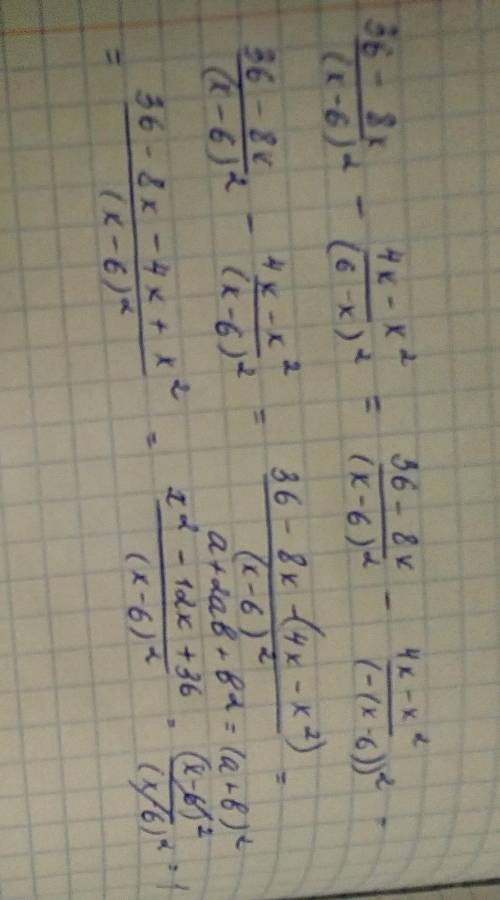 (36 - 8x)/(x-6)² - (4x - x²)/(6-x)² = (36 - 8x)/(x-6)² - (4x - x²)/(-(x-6))² -
(36 - 8x)/(x-6)² - (4x - x²)/(x-6)² = (36 - 8x - (4x - x²))/(x-6)² =
a + 2ab + b² = (a+b)²
= (36 - 8x - 4x + x²)/(x-6)² = (x² - 12x + 36)/(x-6)² = (x-6)²/(x-6)² = 1